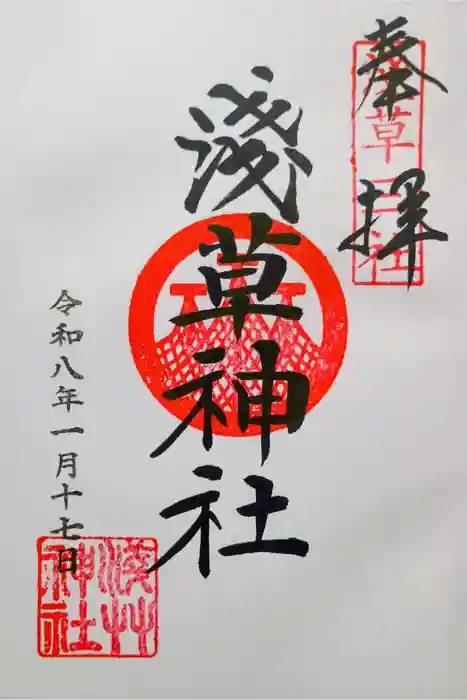 奉拝
淺草神社
令和八年一月十七日
淺草神社